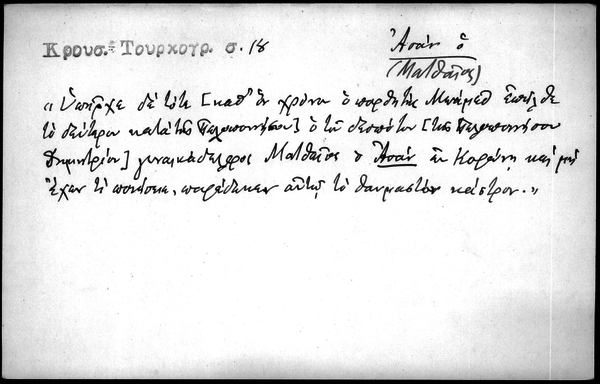 Κρουσ.= Τουρκογρ. σ. 18
Ἀσάν ὁ
(Ματθαῖος)
« Ὑπῆρχε δὲ τότε [καθ' ὃν χρόνον ὁ πορθητὴς Μωάμεθ ἐπῆλθε
τὸ δεύτερον κατὰ τῆς Πελοποννήσου] ὁ τοῦ δεσπότου [τῆς Πελοποννήσου
Δημητρίου] γυναικάδελφος Ματθαῖος ὁ Ἀσάν ἐν Κορίνθῳ καὶ μὴ
ἔχων τί ποιήσειε, παρέδωκεν αὐτῷ τὸ θαυμαστὸν κάστρον. »